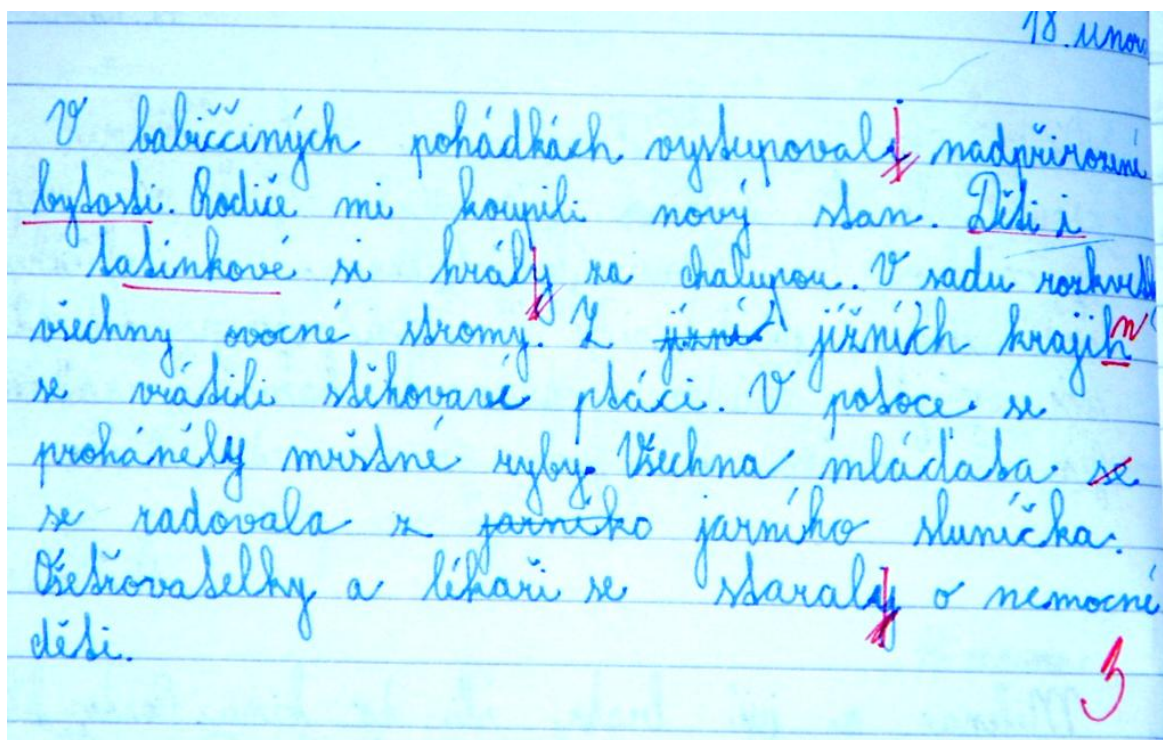 18. únor
V babiččiných pohádkách vystupovali nadpřirozené
bytosti. Rodiče mi koupili nový stan. Děti i
tatínkové si hrály za chalupou. V sadu rozkvetly
všechny ovocné stromy. Z jižní jižních krajih n
se vrátili stěhovaví ptáci. V potoce se
proháněly mrštné ryby. Všechna mláďata se
se radovala z jarniko jarního sluníčka.
Ošetřovatelky a lékaři se staraly o nemocné
děti.
3